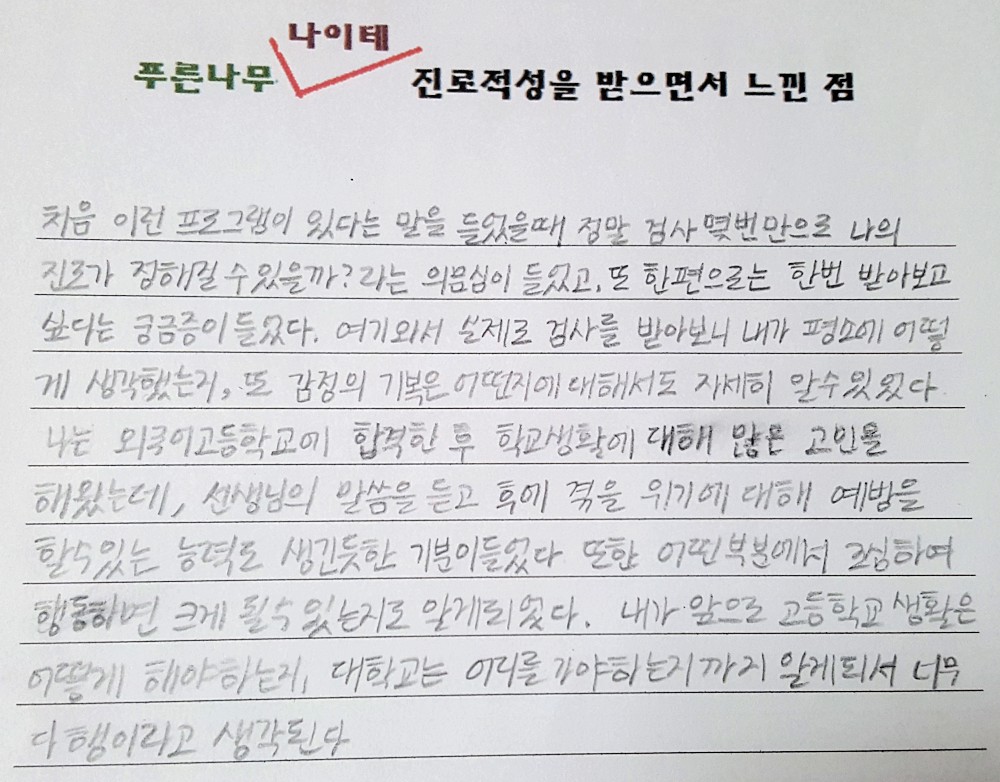 나이테
푸른나무 진로적성을 받으면서 느낀 점
처음 이런 프로그램이 있다는 말을 들었을때 정말 검사 몇번만으로 나의
진로가 정해질 수 있을까? 라는 의문심이 들었고, 또 한편으로는 한번 받아보고
싶다는 궁금증이 들었다. 여기와서 실제로 검사를 받아보니 내가 평소에 어떻
게 생각했는지, 또 감정의 기복은 어떤지에 대해서도 자세히 알수 있었다
나는 외국어고등학교에 합격한 후 학교생활에 대해 많은 고민을
해왔는데, 선생님의 말씀을 듣고 후에 겪을 위기에 대해 예방을
할수있는 능력도 생긴듯한 기분이들었다 또한 어떤부분에서 조심하여
행동하면 크게 될수 있는지도 알게되었다. 내가 앞으로 고등학교 생활은
어떻게 해야하는지, 대학교는 어디를 가야하는지 까지 알게되서 너무
다행이라고 생각된다